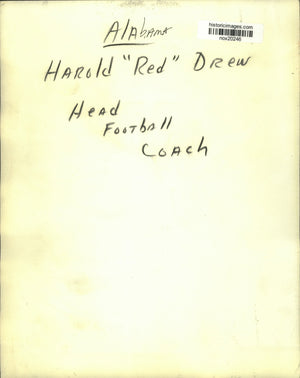 Alabama
historicimages.com
nox20246
Harold "Red" Drew
Head
Football
Coach